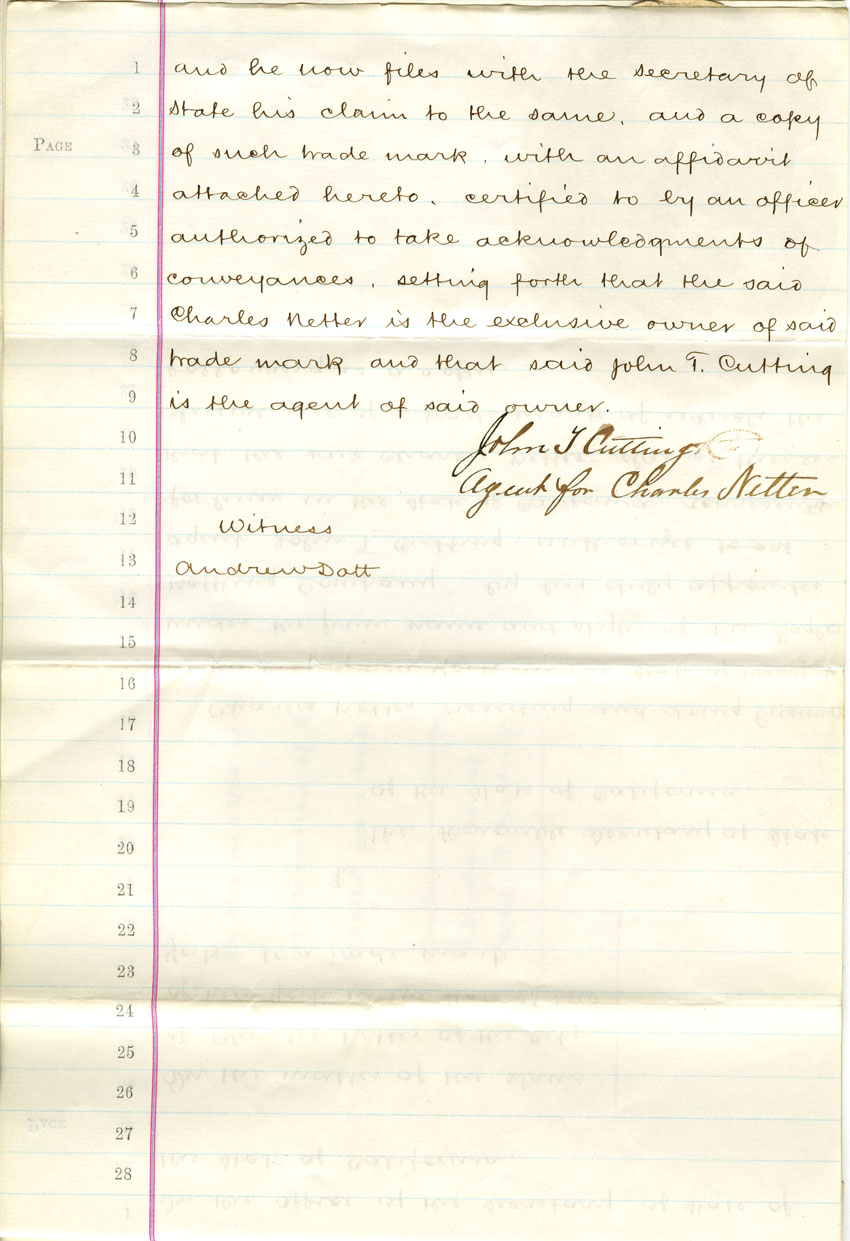 1 and he now files with the secretary of
2 State his claim to the same, and a copy
PAGE
3 of such trade mark, with an affidavit
4 attached hereto, certified to by an officer
5 authorized to take acknowledgments of
6 conveyances, setting forth that the said
7 Charles Netter is the exclusive owner of said
8 trade mark and that said John T. Cutting
9 is the agent of said owner.
10 John T Cutting
11 Agent for Charles Netter
12 Witness
13 Andrew Dott
14
15
16
17
18
19
20
21
22
23
24
25
26
27
28